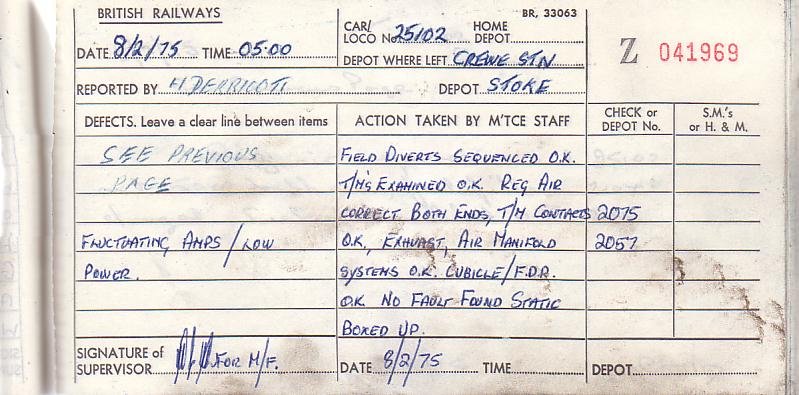 BRITISH RAILWAYS
BR, 33063
DATE 8/2/75 TIME 05.00
CAR/ LOCO No 25102 HOME DEPOT
DEPOT WHERE LEFT CREWE STN
Z 041969
REPORTED BY H DERRICOTT DEPOT STOKE
DEFECTS. Leave a clear line between items
ACTION TAKEN BY M'TCE STAFF
CHECK or DEPOT No.
S.M.'s or H. & M.
SEE PREVIOUS
FIELD DIVERTS SEQUENCED O.K.
PAGE
T/M's EXAMINED O.K. REG AIR
CORRECT BOTH ENDS, T/M CONTACTS 2075
FLUCTUATING AMPS / LOW
O.K., EXHAUST, AIR MANIFOLD 2057
POWER.
SYSTEMS O.K. CUBICLE/F.D.R.
OK NO FAULT FOUND STATIC
BOXED UP.
SIGNATURE of SUPERVISOR FOR M/F.
DATE 8/2/75 TIME
DEPOT